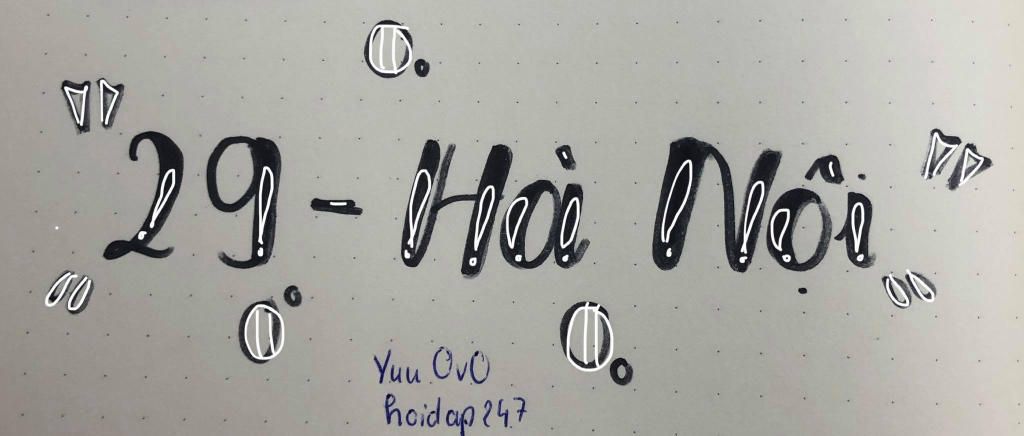 "29 - Hà Nội"
Yuu OvO
hoidap247